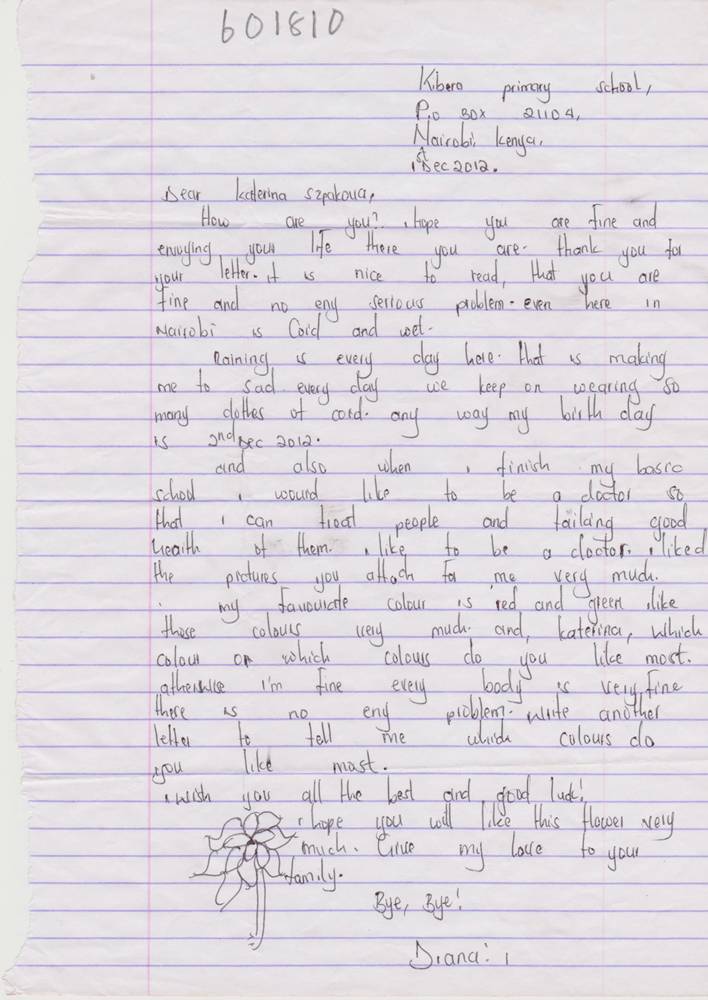 601810
Kibera primary school,
P.o BOX 21104,
Nairobi, Kenya.
1st Dec 2012.
Dear Katerina Szpakova,
How are you? i hope you are fine and
enjoying your life there you are. thank you for
your letter. it is nice to read, that you are
fine and no eny serious problem. even here in
Nairobi is Cord and wet.
Raining is every day here. that is making
me to sad every day we keep on wearing so
many clothes of cord. any way my birth day
is 2nd Dec 2012.
and also when i finish my basic
school i wourd like to be a doctor so
that i can treat people and good
health of them. i like to be a doctor. i liked
the pictures you attach for me very much.
my favourate colour is red and green i like
those colours very much. and, katerina, which
colour or which colours do you like most.
atherwise i'm fine every body is very fine
there is no eny problem. write another
letter to tell me which colours do
you like most.
i wish you all the best and good luck!
i hope you will like this flower very
much. Give my love to your
family.
Bye, Bye!
Diana: 1